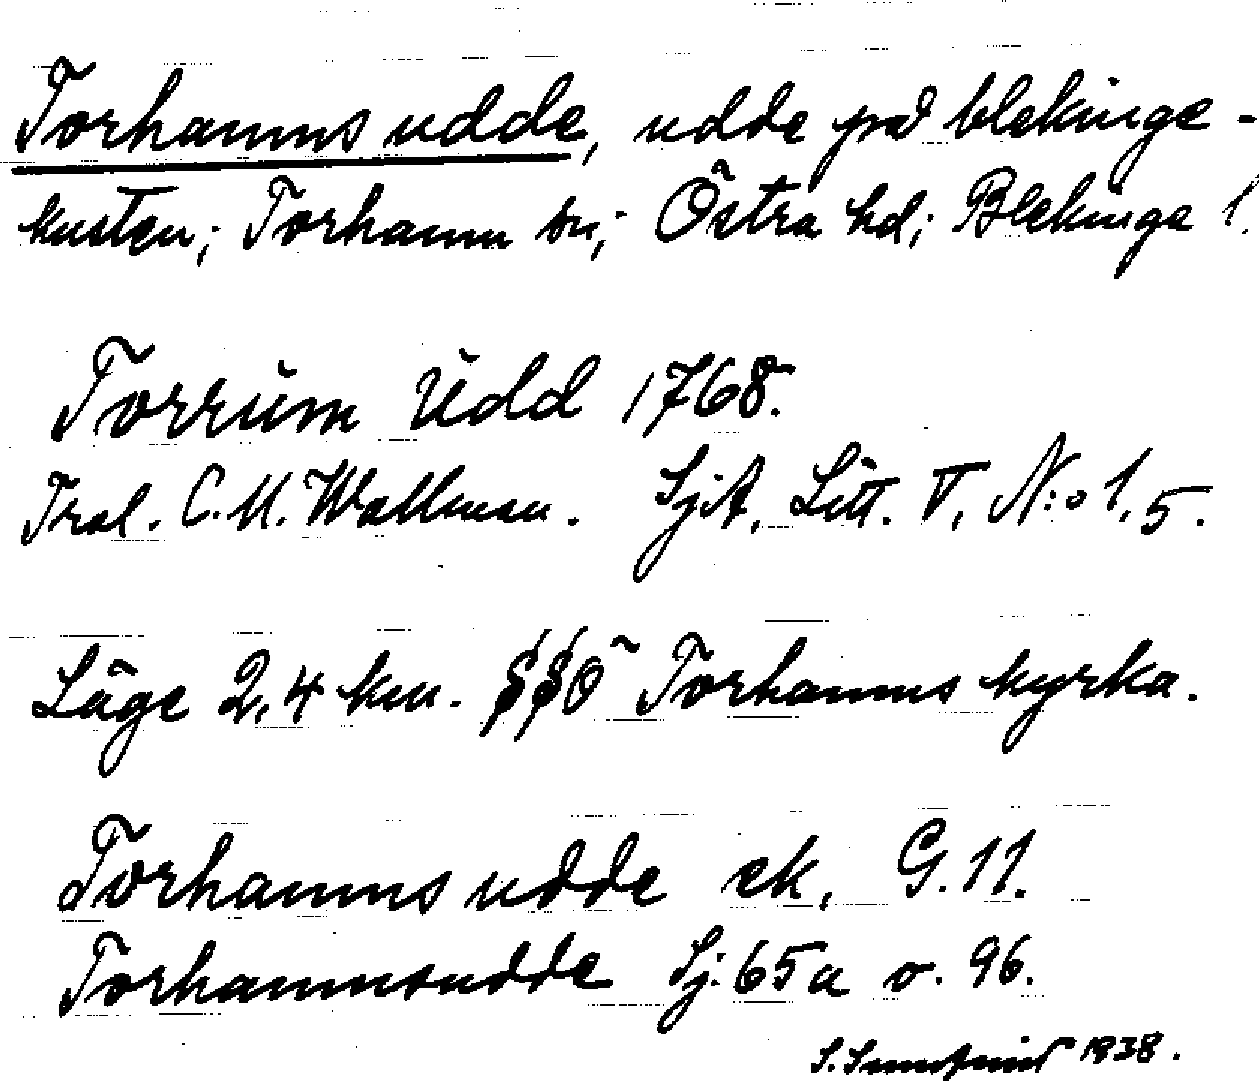 Torhamns udde, udde på blekinge-
kusten; Torhamn sn; Östra hd; Blekinge l.
Torrum Udd 1768.
Trol. C. M. Wallman. SjA, Litt. V, N:o 1, 5.
Läge 2,4 km. SSÖ Torhamns kyrka.
Torhamns udde ek, G. 11.
Torhamnsudde Sj. 65a o. 96.
S. 1938.